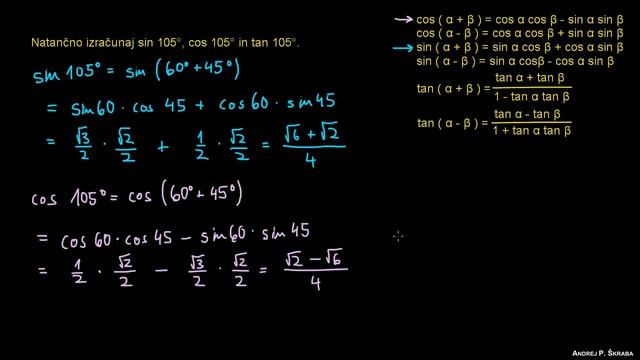 Natančno izračunaj sin 105°, cos 105° in tan 105°.
sin 105° = sin (60° + 45°)
= sin60 · cos 45 + cos60 · sin45
= √3/2 · √2/2 + 1/2 · √2/2 = (√6 + √2)/4
cos 105° = cos (60° + 45°)
= cos60 · cos45 − sin60 · sin 45
= 1/2 · √2/2 − √3/2 · √2/2 = (√2 − √6)/4
cos ( α + β ) = cos α cos β - sin α sin β
cos ( α - β ) = cos α cos β + sin α sin β
sin ( α + β ) = sin α cos β + cos α sin β
sin ( α - β ) = sin α cosβ - cos α sin β
tan ( α + β ) = (tan α + tan β)/(1 - tan α tan β)
tan ( α - β ) = (tan α - tan β)/(1 + tan α tan β)
ANDREJ P. ŠKRABA